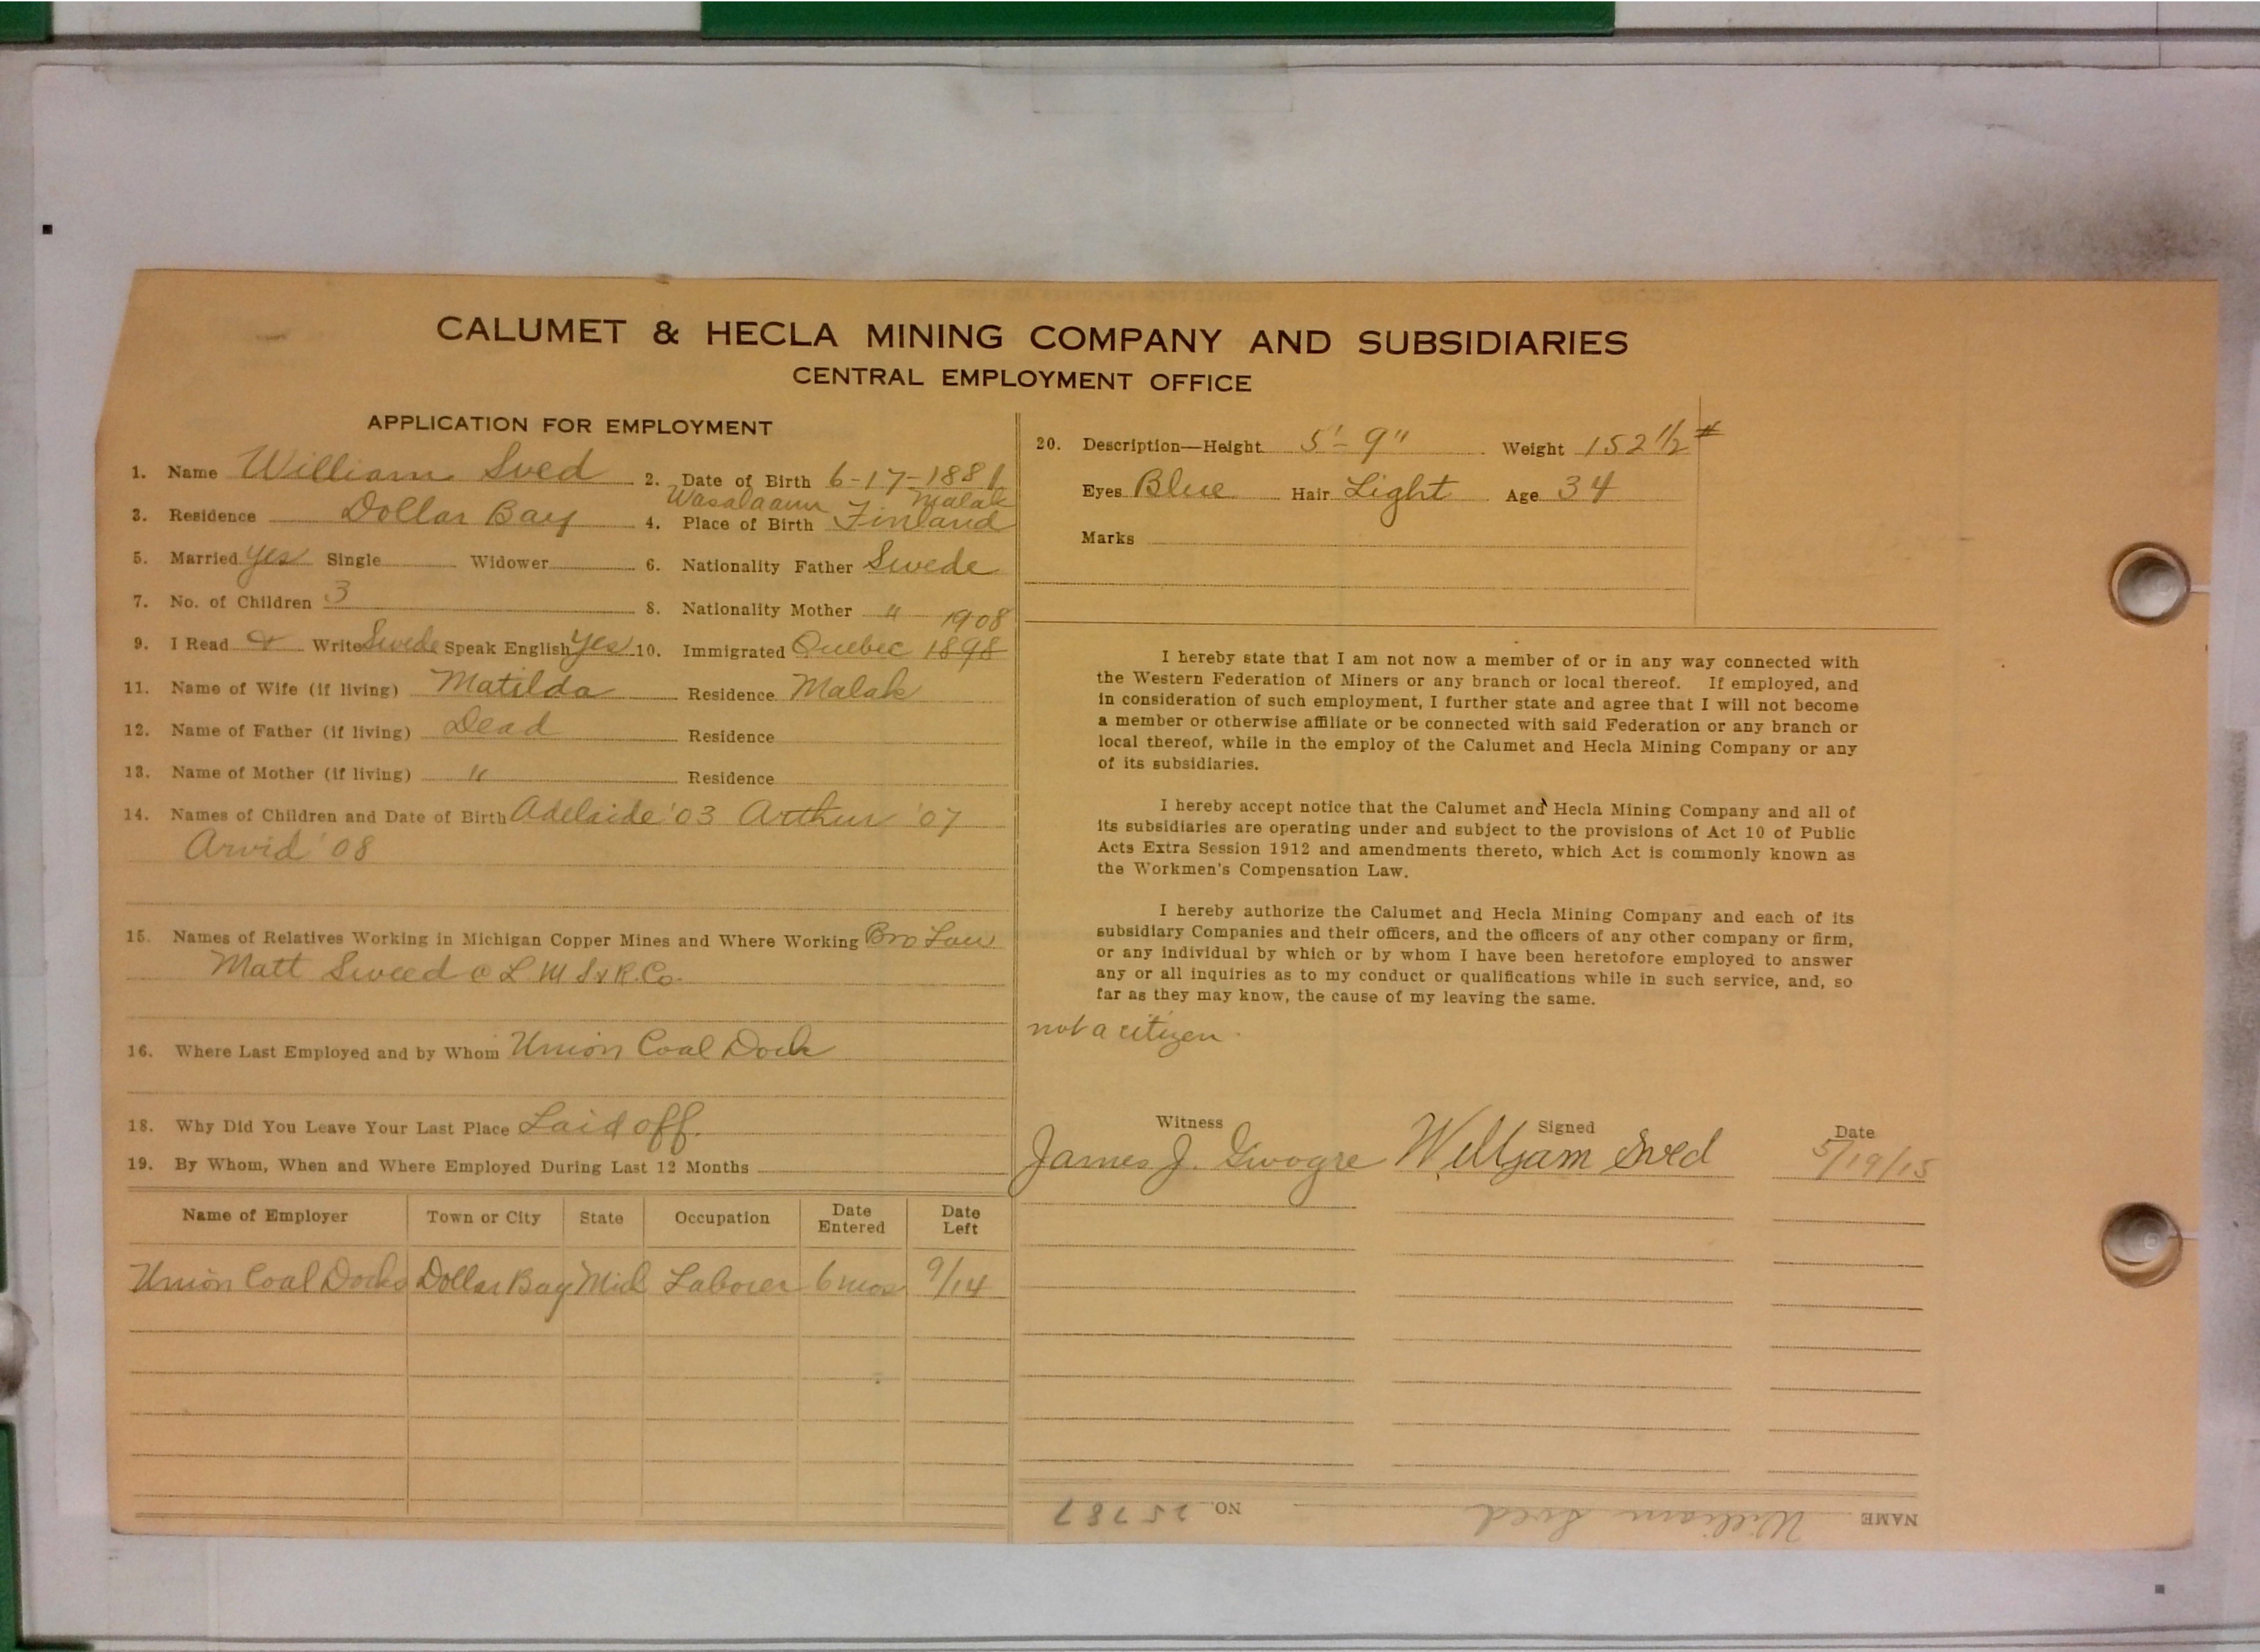 CALUMET & HECLA MINING COMPANY AND SUBSIDIARIES
CENTRAL EMPLOYMENT OFFICE
APPLICATION FOR EMPLOYMENT
1. Name William Sved 2. Date of Birth 6-17-1881
Wasalaann Malak
3. Residence Dollar Bay 4. Place of Birth Finland
5. Married yes Single Widower 6. Nationality Father Swede
7. No. of Children 3 8. Nationality Mother "
1908
9. I Read & Write Swede Speak English yes 10. Immigrated Quebec 1898
11. Name of Wife (if living) Matilda Residence Malak
12. Name of Father (if living) Dead Residence
13. Name of Mother (if living) " Residence
14. Names of Children and Date of Birth Adelaide '03 Arthur '07
Arvid '08
15. Names of Relatives Working in Michigan Copper Mines and Where Working Bro Law
Matt Sweed @ L M S & R. Co.
16. Where Last Employed and by Whom Union Coal Dock
18. Why Did You Leave Your Last Place Laid off.
19. By Whom, When and Where Employed During Last 12 Months
Name of Employer Town or City State Occupation Date Entered Date Left
Union Coal Docks Dollar Bay Mich Laborer 6 mos 9/14
20. Description—Height 5'-9" Weight 152 1/2 #
Eyes Blue Hair Light Age 34
Marks
I hereby state that I am not now a member of or in any way connected with
the Western Federation of Miners or any branch or local thereof. If employed, and
in consideration of such employment, I further state and agree that I will not become
a member or otherwise affiliate or be connected with said Federation or any branch or
local thereof, while in the employ of the Calumet and Hecla Mining Company or any
of its subsidiaries.
I hereby accept notice that the Calumet and Hecla Mining Company and all of
its subsidiaries are operating under and subject to the provisions of Act 10 of Public
Acts Extra Session 1912 and amendments thereto, which Act is commonly known as
the Workmen's Compensation Law.
I hereby authorize the Calumet and Hecla Mining Company and each of its
subsidiary Companies and their officers, and the officers of any other company or firm,
or any individual by which or by whom I have been heretofore employed to answer
any or all inquiries as to my conduct or qualifications while in such service, and, so
far as they may know, the cause of my leaving the same.
not a citizen.
Witness Signed Date
James J. Willjam Sved 5/19/15
NAME William Sved NO. 25787